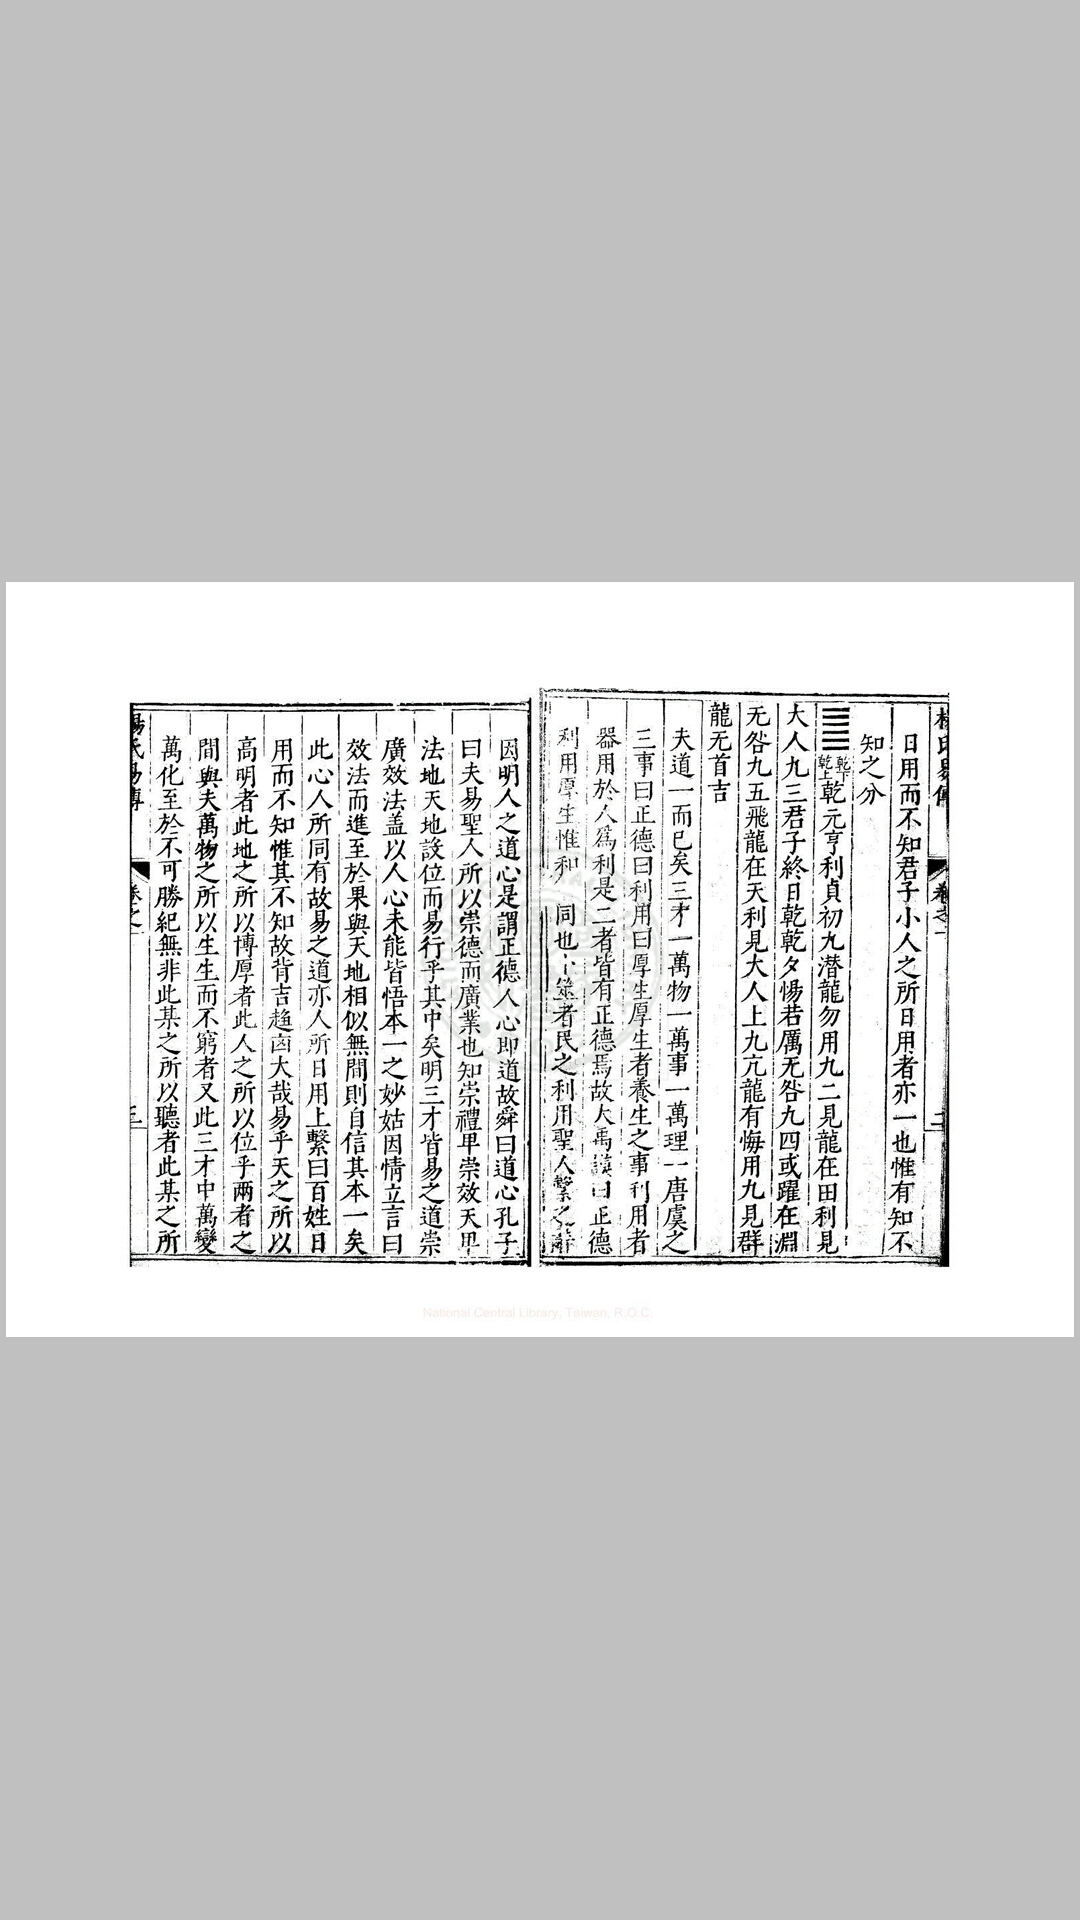 日用而不知君子小人之所日用者亦一也惟有知不
知之分
乾下
乾上
乾元亨利貞初九潛龍勿用九二見龍在田利見
大人九三君子終日乾乾夕惕若厲无咎九四或躍在淵
无咎九五飛龍在天利見大人上九亢龍有悔用九見群
龍无首吉
夫道一而已矣三才一萬物一萬事一萬理一唐虞之
三事曰正德曰利用曰厚生厚生者養生之事利用者
器用於人爲利是二者皆有正德焉故大禹謨曰正德
利用厚生惟和 同也卜筮者民之利用聖人繫之辭
因明人之道心是謂正德人心即道故舜曰道心孔子
曰夫易聖人所以崇德而廣業也知崇禮卑崇效天卑
法地天地設位而易行乎其中矣明三才皆易之道崇
廣效法蓋以人心未能皆悟本一之妙姑因情立言曰
效法而進至於果與天地相似無間則自信其本一矣
此心人所同有故易之道亦人所日用上繫曰百姓日
用而不知惟其不知故背吉趨凶大哉易乎天之所以
高明者此地之所以博厚者此人之所以位乎兩者之
間與夫萬物之所以生生而不窮者又此三才中萬變
萬化至於不可勝紀無非此某之所以聽者此某之所
楊氏易傳
卷之一
三
National Central Library, Taiwan, R.O.C.